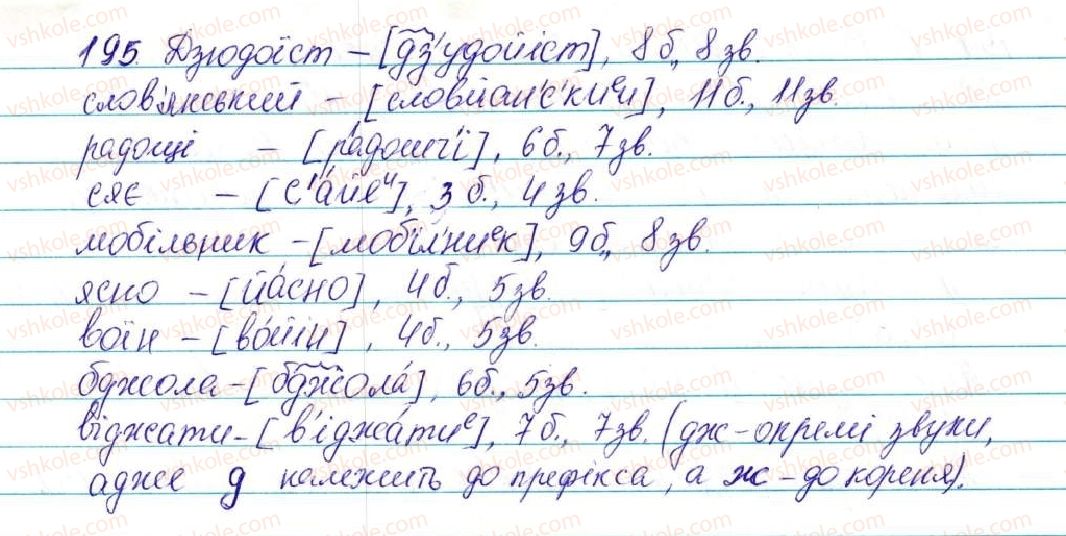 195. Дзюдоїст – [дз'удойіст], 8б., 8 зв.
слов'янський – [словйан'с'киᵉй], 11б., 11зв.
радощі – [ра́дошч'і], 6б., 7зв.
сяє – [с'а́йеᶤ], 3 б., 4 зв.
мобільник – [мобі́л'ниᵉк], 9б., 8 зв.
ясно – [йа́сно], 4б., 5зв.
воїн – [во́йін], 4б., 5зв.
бджола – [бджола́], 6б., 5зв.
віджати – [в'іджа́тиᵉ], 7б., 7зв. (дж – окремі звуки,
адже д належить до префікса, а ж – до кореня).